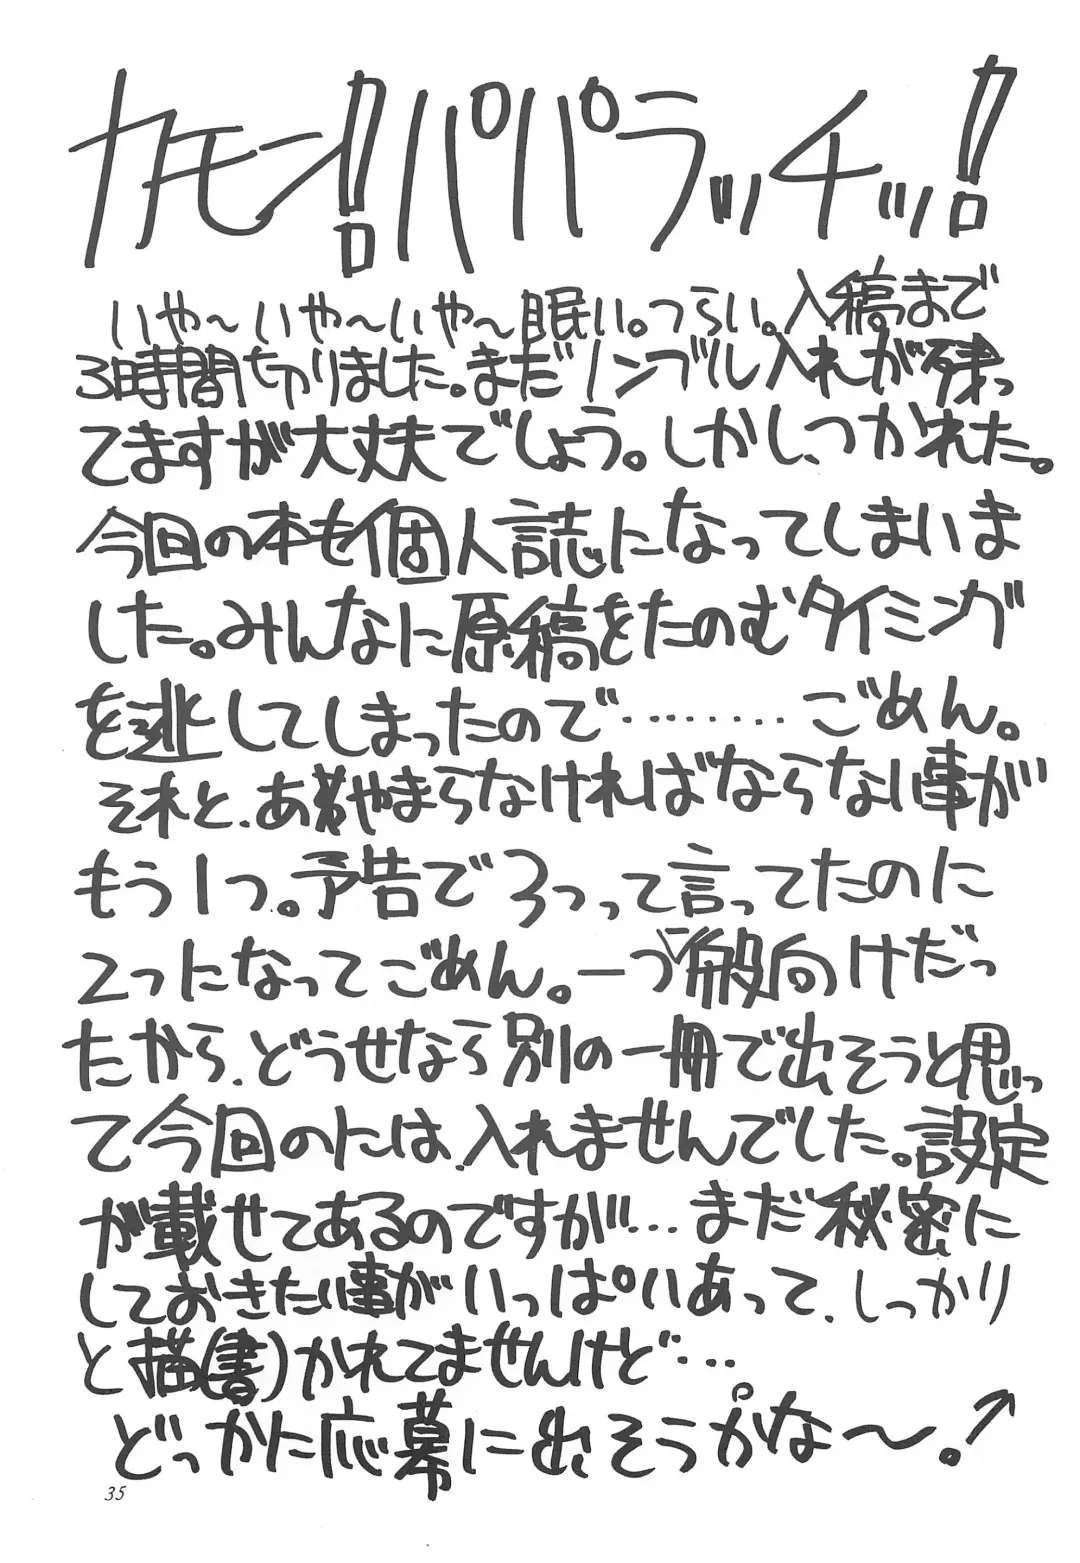 カモン!!パパラッチッ!!
いや〜いや〜いや〜眠い。つらい。入稿まで
3時間切りました。まだノンブル入れが残っ
てますが大丈夫でしょう。しかし、つかれた。
今回の本も個人誌になってしまいま
した。みんなに原稿をたのむタイミング
を逃してしまったので………ごめん。
それと、あやまらなければならない事が
もう1つ。予告で3つって言ってたのに
2つになってごめん。一つ、般向けだっ
たから、どうせなら別の一冊で出そうと思っ
て今回のには、入れませんでした。設定
が載せてあるのですが…まだ秘密に
しておきたい事がいっぱいあって、しっかり
と描(書)かれてませんけど…
どっかに応募に出そうかな〜。↗
35